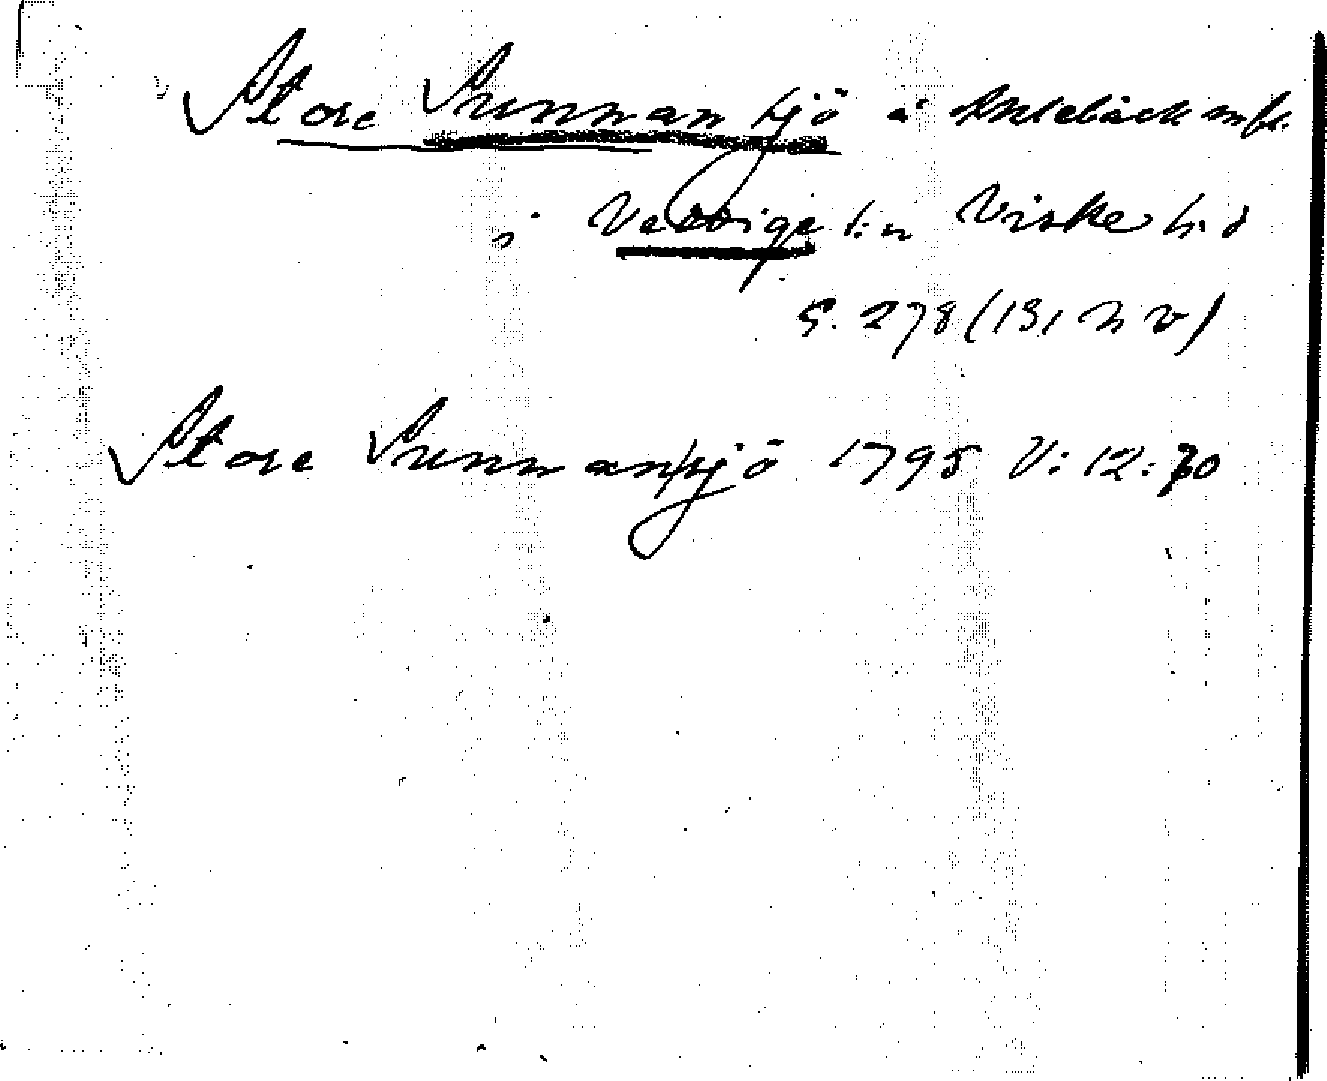 Store Sunnansjö i
i Veddige s:n Viske h:d
S. 278 (131 n v)
Store Sunnansjö 1795 V: 12: 70